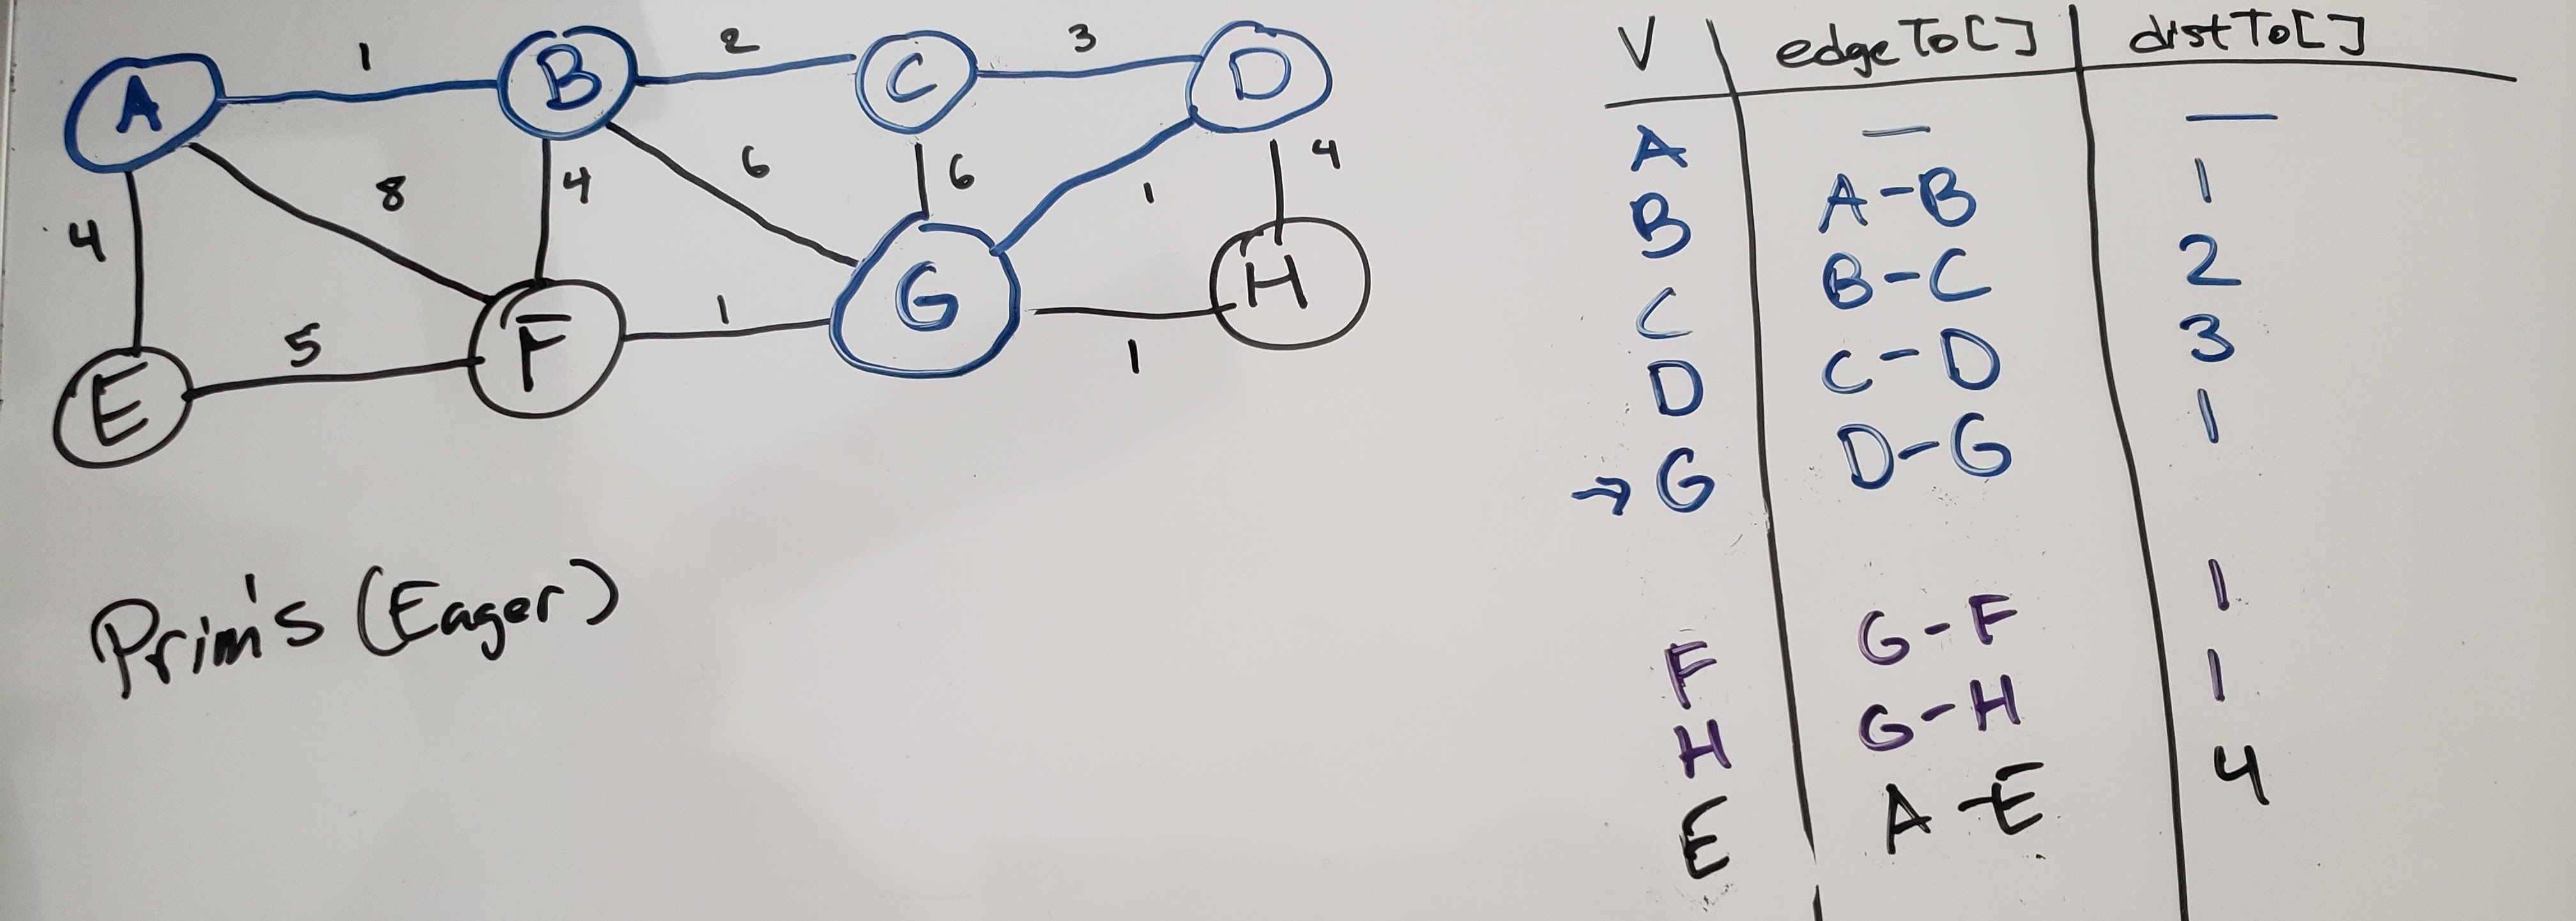 A 1 B 2 C 3 D
4 8 4 6 6 1 4
E 5 F 1 G 1 H
Prim's (Eager)
V edgeTo[] distTo[]
A — —
B A-B 1
C B-C 2
D C-D 3
→ G D-G 1
F G-F 1
H G-H 1
E A-E 4